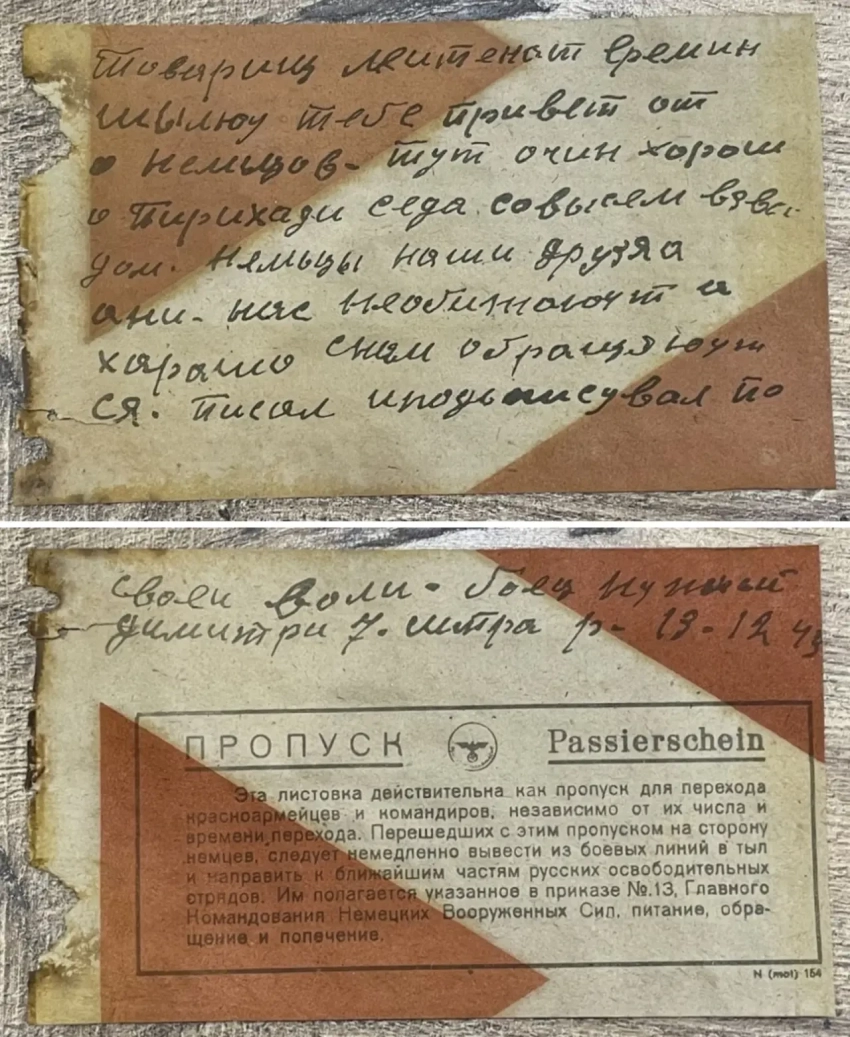 Товарищ леитенат Еремин
шылюу тебе привет от
о немьцов - тут очин хорош
о пирихади седа совысем взво
дом. нямьцы наши друзяа
ани - нас ниобижаюут а
харашо снам обращяюут
ся. писал иподьписувал по
своеи воли - боец
Димитри 7. р - 19 - 12
ПРОПУСК Passierschein
Эта листовка действительна как пропуск для перехода
красноармейцев и командиров, независимо от их числа и
времени перехода. Перешедших с этим пропуском на сторону
немцев, следует немедленно вывести из боевых линий в тыл
и направить к ближайшим частям русских освободительных
отрядов. Им полагается указанное в приказе №.13, Главного
Командования Немецких Вооруженных Сил, питание, обра-
щение и попечение.
N (mot) 154